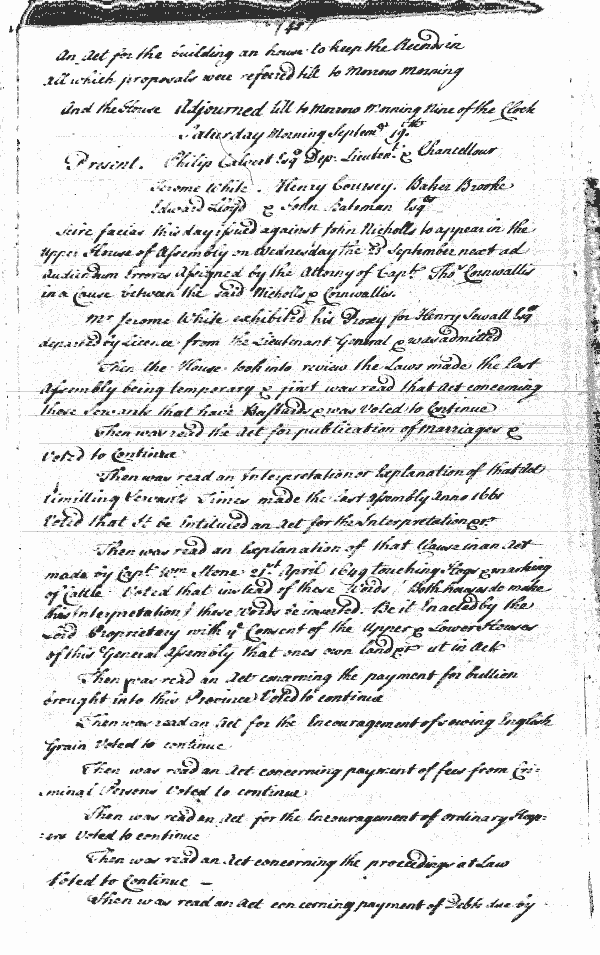 (48)
An Act for the building an house to keep the Records in
All which proposals were referred till to Morrow Morning
And the House Adjourned till to Morrow Morning Nine of the Clock
Saturday Morning Septemr 19th
Present. Philip Calvert Esqr Dep: Lieutent & Chancellour
Jerome White. Henry Coursey. Baker Brooke
Edward Lloyd & John Bateman Esqrs
Scire facias this day issued against John Nicholls to appear in the
Upper House of Assembly on Wednesday the September next ad
Audiendum Errores Assigned by the Attorny of Capt: Thos Cornwallis
in a Cause between the said Nicholls & Cornwallis.
Mr Jerome White exhibited his Proxy for Henry Sewall Esqr
departed by Licence from the Lieutenant General & was admitted
Then the House took into review the Laws made the last
Assembly being temporary & first was read that Act concerning
those Servants that have Bastards & was Voted to Continue
Then was read the Act for publication of Marriages &
Voted to Continue
Then was read an Interpretation or Explanation of that Act
limitting Servants Times made the last Assembly Anno 1661
Voted that It be Intituled an Act for the Interpretation &c
Then was read an Explanation of that Clause in an Act
made by Capt: Wm Stone 21st April 1649 touching Hogs & marking
of Cattle Voted that instead of these Words / Both houses do make
this Interpretation / these Words be inserted. Be it Enacted by the
Lord Proprietary with ye Consent of the Upper & Lower Houses
of this General Assembly that ones own land &c ut in Act
Then was read an Act concerning the payment for bullion
brought into this Province Voted to continue
Then was read an Act for the Encouragement of sowing English
Grain Voted to continue
Then was read an Act concerning payment of fees from Cri-
minal Persons Voted to continue
Then was read an Act for the Encouragement of ordinary Keep-
ers Voted to continue
Then was read an Act concerning the proceedings at Law
Voted to Continue —
Then was read an Act concerning payment of Debts due by